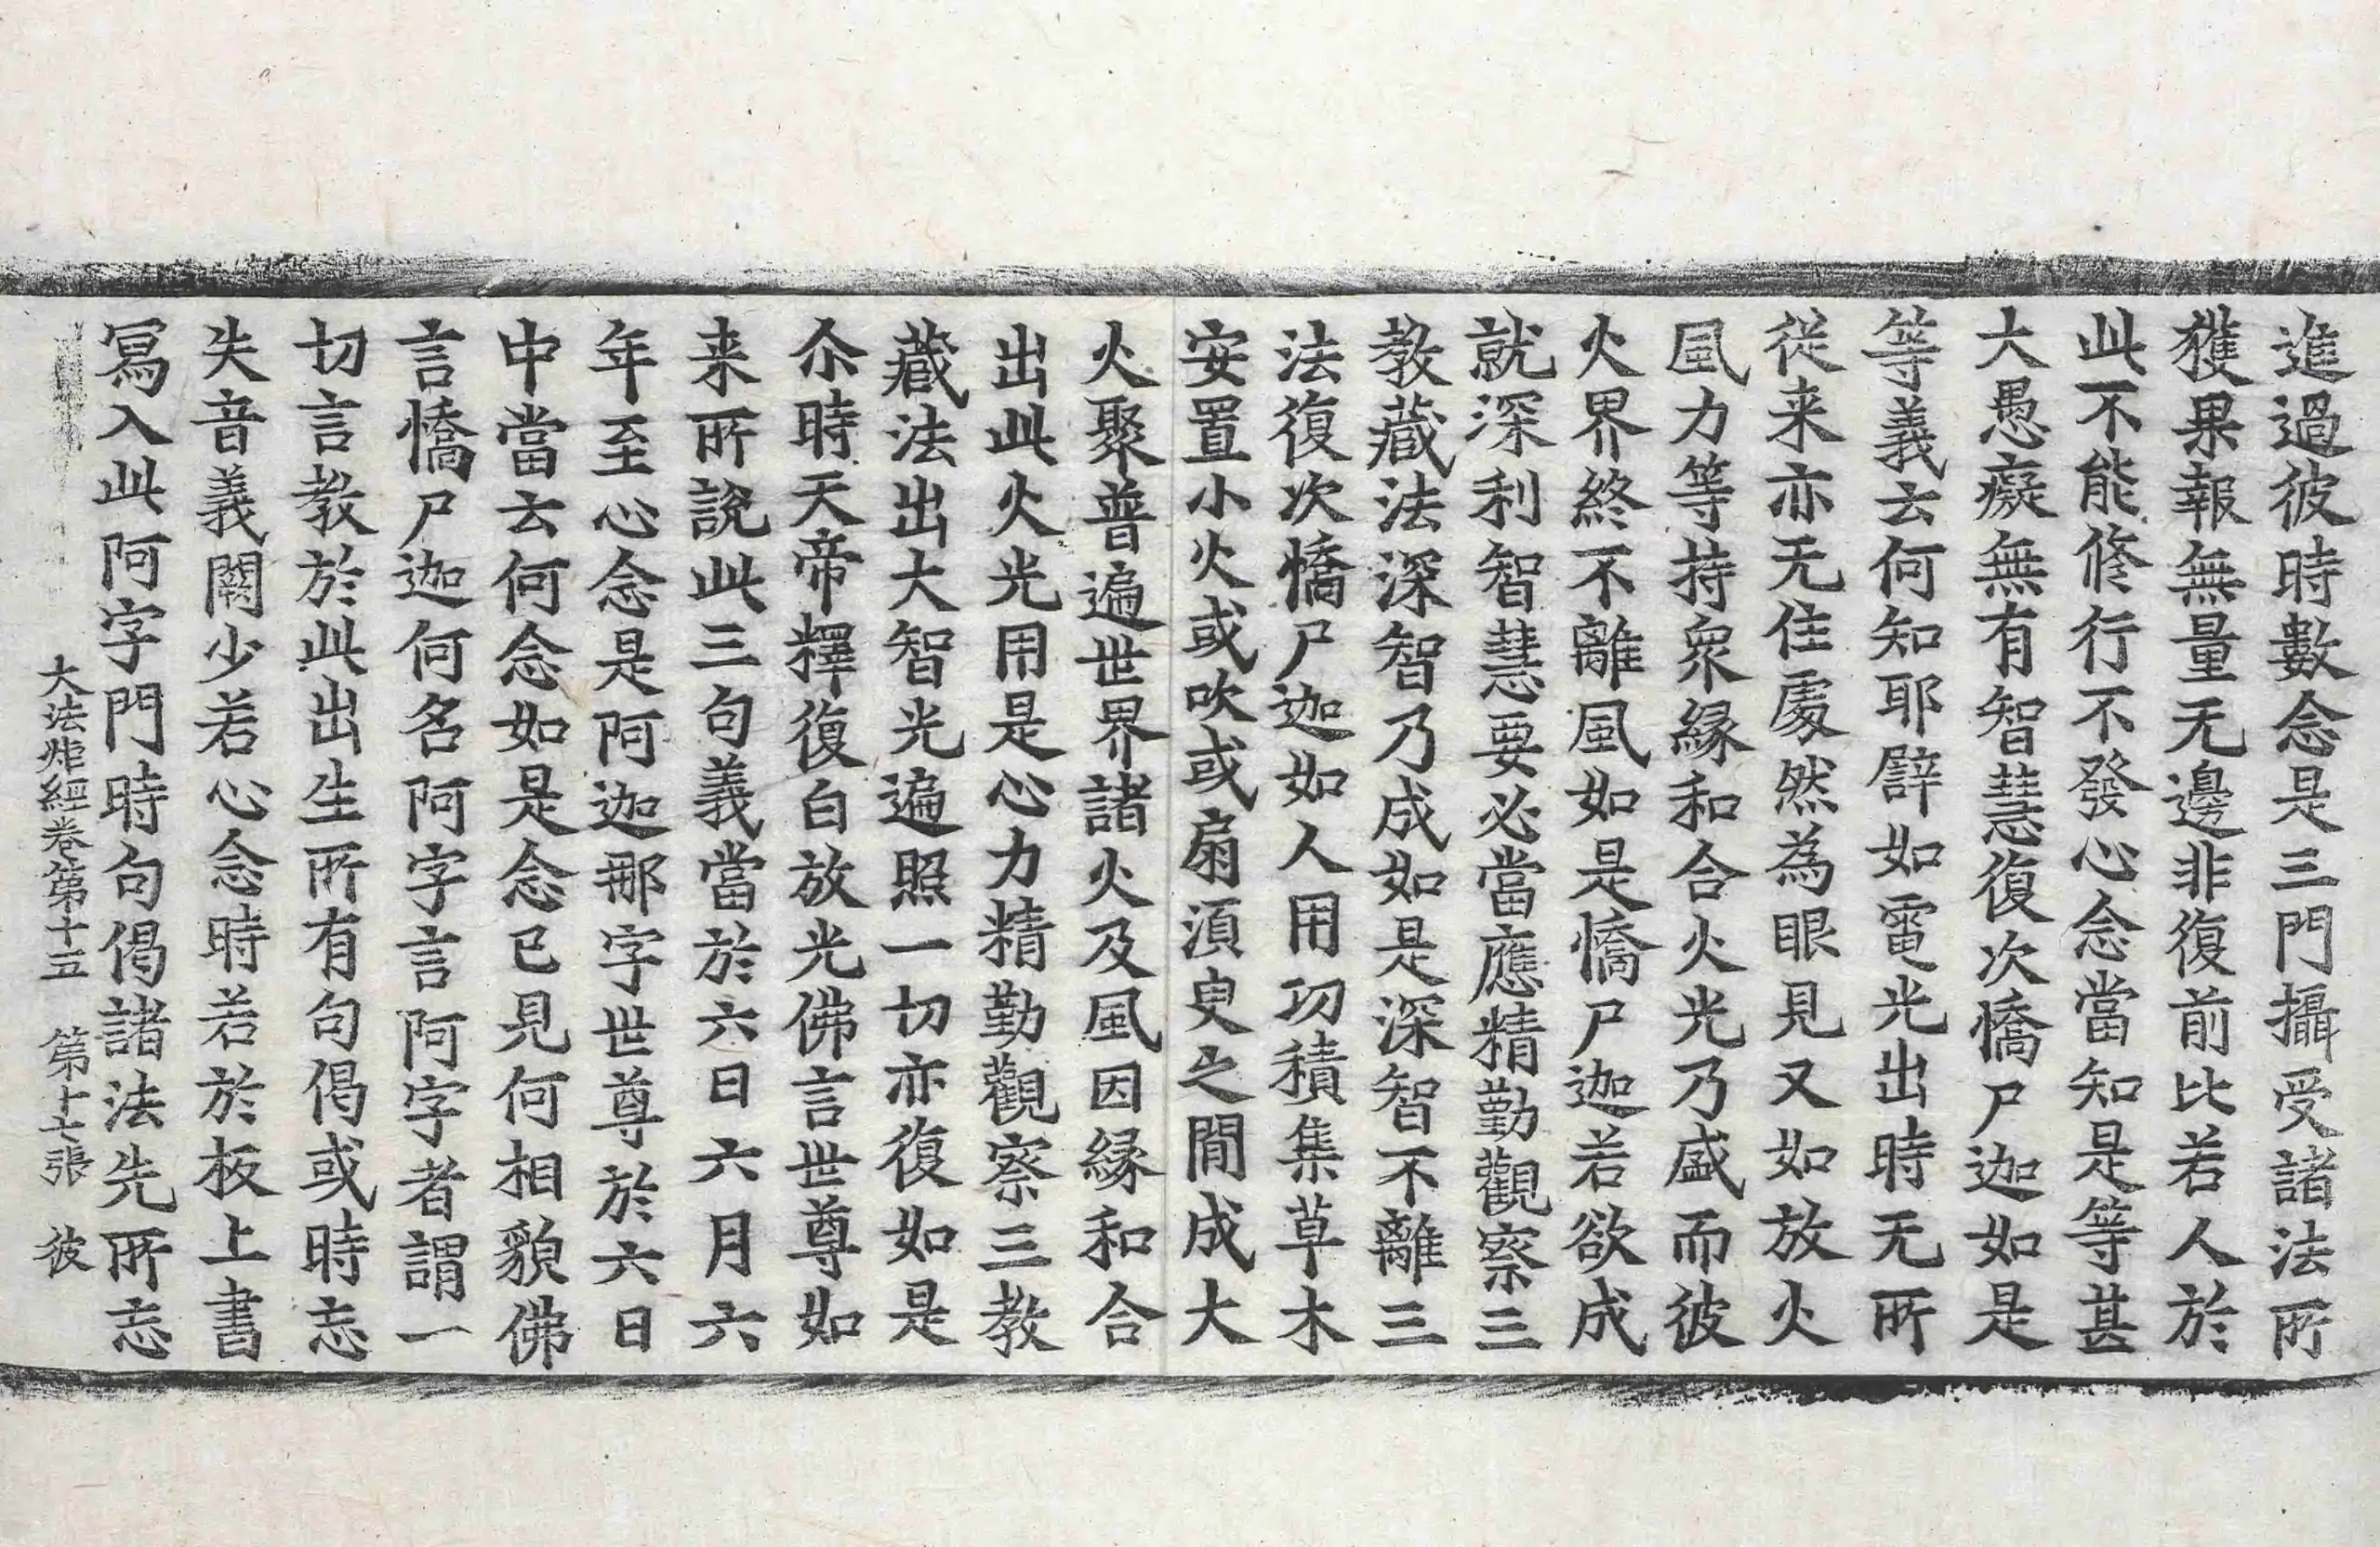 進過彼時數念是三門攝受諸法所
獲果報無量无邊非復前比若人於
此不能修行不發心念當知是等甚
大愚癡無有智慧復次憍尸迦如是
等義云何知耶譬如電光出時无所
從来亦无住處然為眼見又如放火
風力等持衆緣和合火光乃盛而彼
火界終不離風如是憍尸迦若欲成
就深利智慧要必當應精勤觀察三
教藏法深智乃成如是深智不離三
法復次憍尸迦如人用功積集草木
安置小火或吹或扇湏臾之間成大
火聚普遍世界諸火及風因緣和合
出此火光用是心力精勤觀察三教
藏法出大智光遍照一切亦復如是
尒時天帝釋復白放光佛言世尊如
来所說此三句義當於六日六月六
年至心念是阿迦那字世尊於六日
中當云何念如是念已見何相貌佛
言憍尸迦何名阿字言阿字者謂一
切言教於此出生所有句偈或時忘
失音義闕少若心念時若於板上書
寫入此阿字門時句偈諸法先所忘
大法炬經卷第十五　第十七張　彼